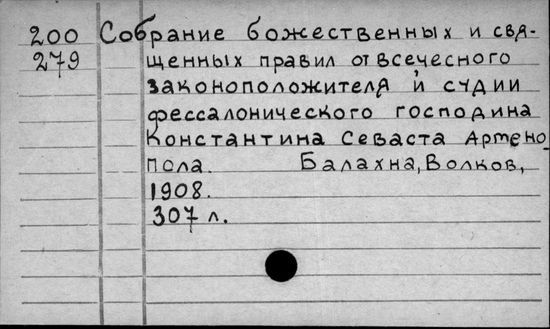 200 Собрание божественных и свя-
279 щенных правил от всечесного
законоположителя и судии
фессалонического господина
Константина Севаста Артено
пола. Балахна, Волков,
1908.
307 л.